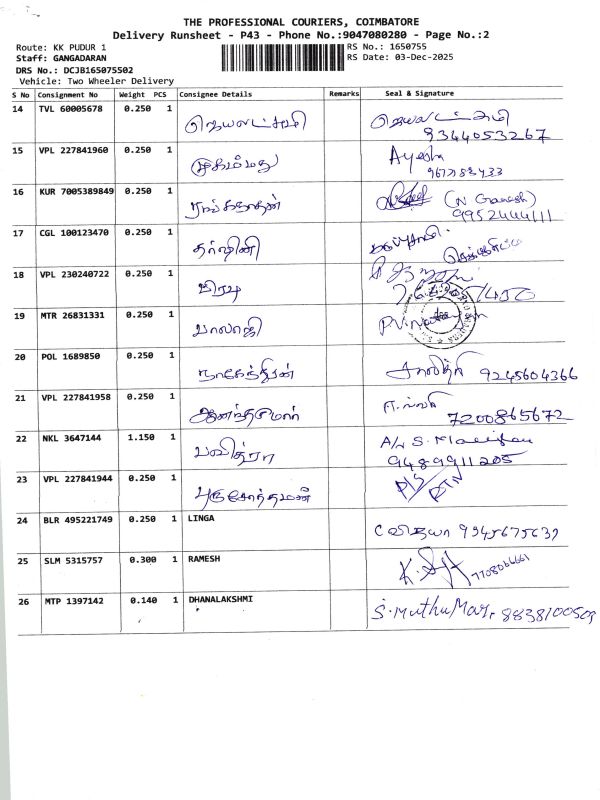 THE PROFESSIONAL COURIERS, COIMBATORE
Delivery Runsheet - P43 - Phone No.:9047080280 - Page No.:2
Route: KK PUDUR 1 RS No.: 1650755
Staff: GANGADARAN RS Date: 03-Dec-2025
DRS No.: DCJB165075502
Vehicle: Two Wheeler Delivery
S No Consignment No Weight PCS Consignee Details Remarks Seal & Signature
14 TVL 60005678 0.250 1 ஜெயலட்சுமி ஜெயலட்சுமி
9344053267
15 VPL 227841960 0.250 1 முகம்மது Ayesha
16 KUR 7005389849 0.250 1 ரங்கநாதன் (N Ganesh)
9952444111
17 CGL 100123470 0.250 1 தர்ஷினி
18 VPL 230240722 0.250 1
19 MTR 26831331 0.250 1 பாலாஜி
20 POL 1689850 0.250 1 நாகேந்திரன் 9245604366
21 VPL 227841958 0.250 1 ஆனந்தகுமார்
7200865672
22 NKL 3647144 1.150 1 பவித்ரா A/c S.
9489911205
23 VPL 227841944 0.250 1 புருசோத்தமன்
24 BLR 495221749 0.250 1 LINGA C விஜயா 9945675639
25 SLM 5315757 0.300 1 RAMESH 7708066661
26 MTP 1397142 0.140 1 DHANALAKSHMI S. Muthu Mari 8838100509